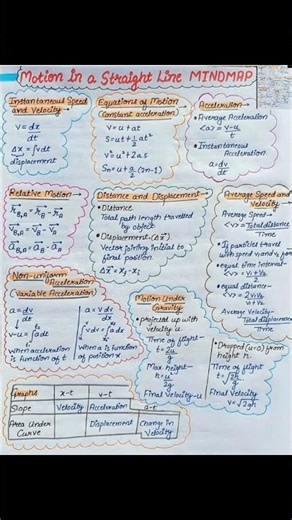 Motion In a Straight Line MINDMAP
Instantaneous Speed
and Velocity
v = dx/dt
Δx = ∫vdt
displacement
Equations of Motion
Constant acceleration
v = u + at
S = ut + 1/2 at²
v² = u² + 2as
Sn = u + a/2 (2n-1)
Acceleration
• Average Acceleration
<a> = v-u/t
• Instantaneous
Acceleration.
a = dv/dt
Relative Motion
Distance and Displacement
• Distance
Total path length travelled
by object
• Displacement (Δx)
Vector joining initial to
final position.
Δx = x₂ - x₁
Average Speed and
Velocity
Average Speed-
<v> = Total distance/Time
• If particle travel
with speed v₁ and v₂ for
• equal time interval-
<v> = v₁ + v₂/2
• equal distance-
<v> = 2v₁v₂/v₁+v₂
Average Velocity-
<v> = Total displacement/Time
Non-uniform
acceleration
(Variable Acceleration)
a = dv/dt
v-u = ∫adt
when acceleration
is function of t
a = vdv/dx
∫vdv = ∫adx
when a is function
of position x
Motion Under
Gravity
• projected up with
velocity u.
Time of flight
t = 2u/g
Max. height-
h = u²/2g
Final velocity = u
• Dropped (u=0) from
height h.
Time of flight
t = √2h/g
Final Velocity
v = √2gh
Graphs x-t v-t a-t
Slope Velocity Acceleration
Area Under Curve Displacement Change in Velocity